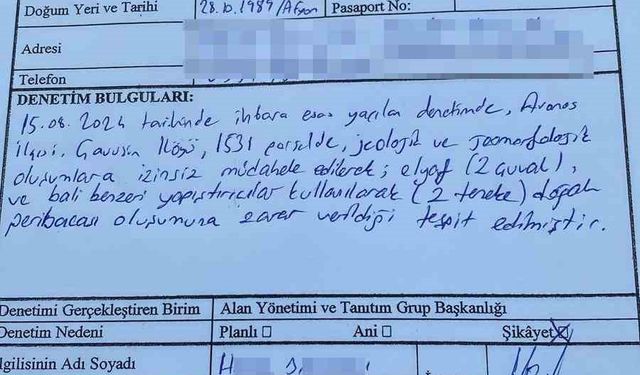 Doğum Yeri ve Tarihi 28.10.1989/Afyon Pasaport No:
Adresi
Telefon
DENETİM BULGULARI:
15.08.2024 tarihinde ihbara esas yapılan denetimde, Avanos
İlçesi, Çavuşin Köyü, 1531 parselde, jeolojik ve jeomorfolojik
oluşumlara izinsiz müdahele edilerek; elyaf (2 çuval),
ve bali benzeri yapıştırıcılar kullanılarak (2 teneke) doğal
peribacası oluşumuna zarar verildiği tespit edilmiştir.
Denetimi Gerçekleştiren Birim Alan Yönetimi ve Tanıtım Grup Başkanlığı
Denetim Nedeni Planlı ☐ Ani ☐ Şikâyet ☒
lgilisinin Adı Soyadı